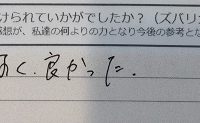 けられていかがでしたか？（ズバリ
感想が、私達の何よりの力となり今後の参考とな
く、良かった。